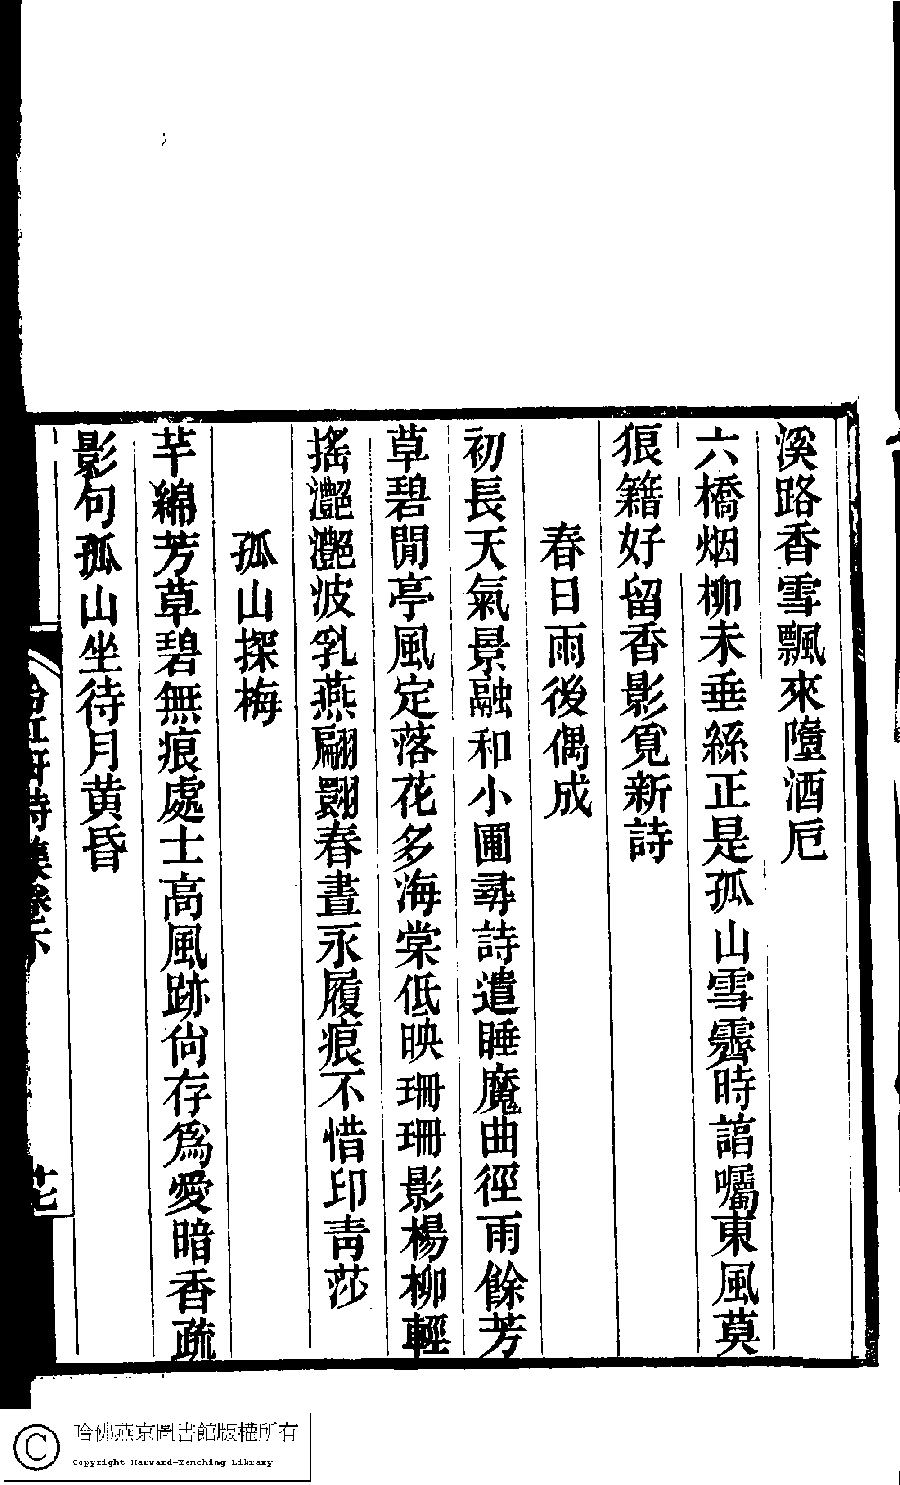 溪路香雪飄來墮酒卮
六橋烟柳未垂絲正是孤山雪霽時諳囑東風莫
狠籍好留香影覓新詩
春日雨後偶成
初長天氣景融和小圃尋詩遣睡魔曲徑雨餘芳
草碧閒亭風定落花多海棠低映珊珊影楊柳輕
搖灧灧波乳燕翩翾春晝永履痕不惜印青莎
孤山探梅
芊綿芳草碧無痕處士高風跡尙存爲愛暗香疏
影句孤山坐待月黄昏
詩集卷下
哈佛燕京圖書館版權所有
Copyright Harvard-Yenching Library